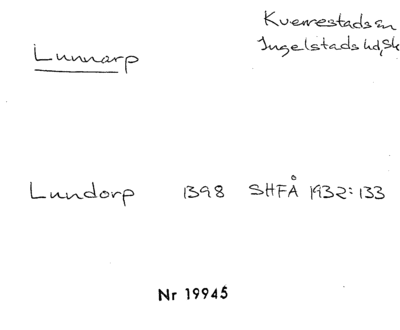 Kverrestads sn
Ingelstads hd, Sk
Lunnarp
Lundorp 1398 SHFÅ 1932:133
Nr 19945